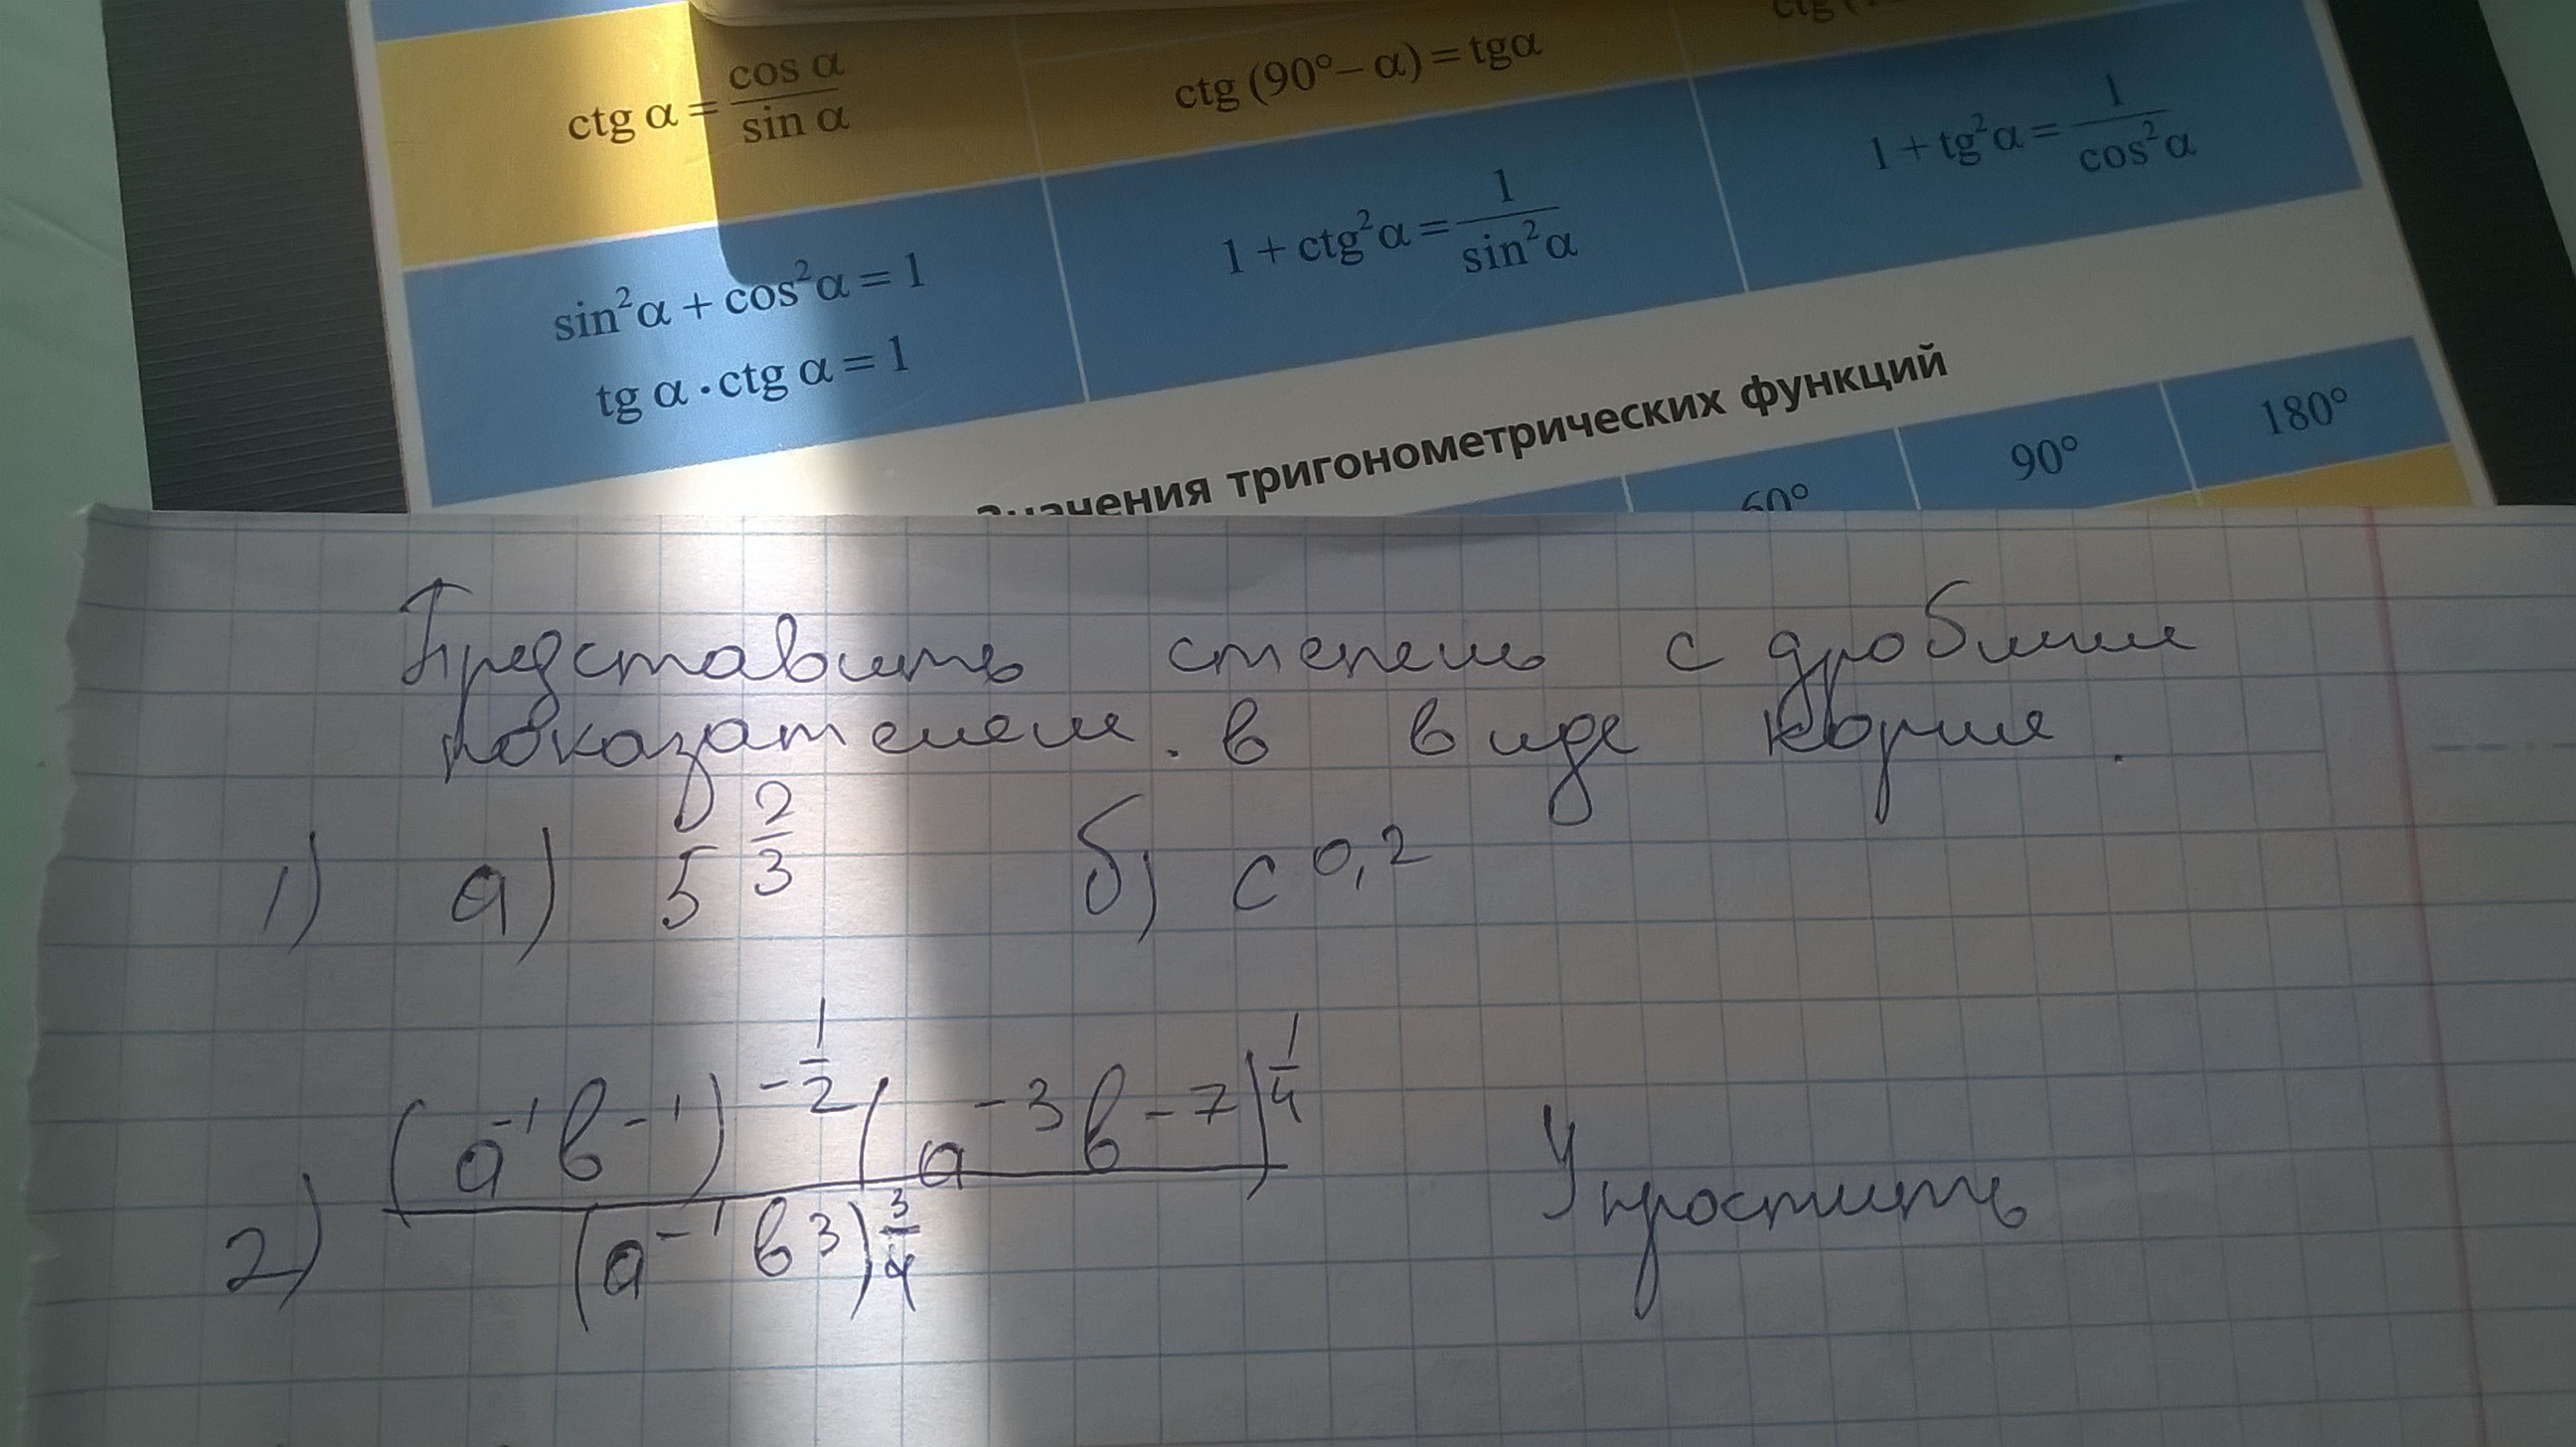 ctg α = cos α / sin α
ctg (90° – α) = tgα
ctg (
sin²α + cos²α = 1
tg α · ctg α = 1
1 + ctg²α = 1 / sin²α
1 + tg²α = 1 / cos²α
Значения тригонометрических функций
60° 90° 180°
Представить степень с дробным
показателем. в виде корня.
1) а) 5^(2/3) б) c^(0,2)
2) (a^(-1) b^(-1))^(-1/2) (a^(-3) b^(-7))^(1/4) / (a^(-1) b^3)^(3/4) Упростить